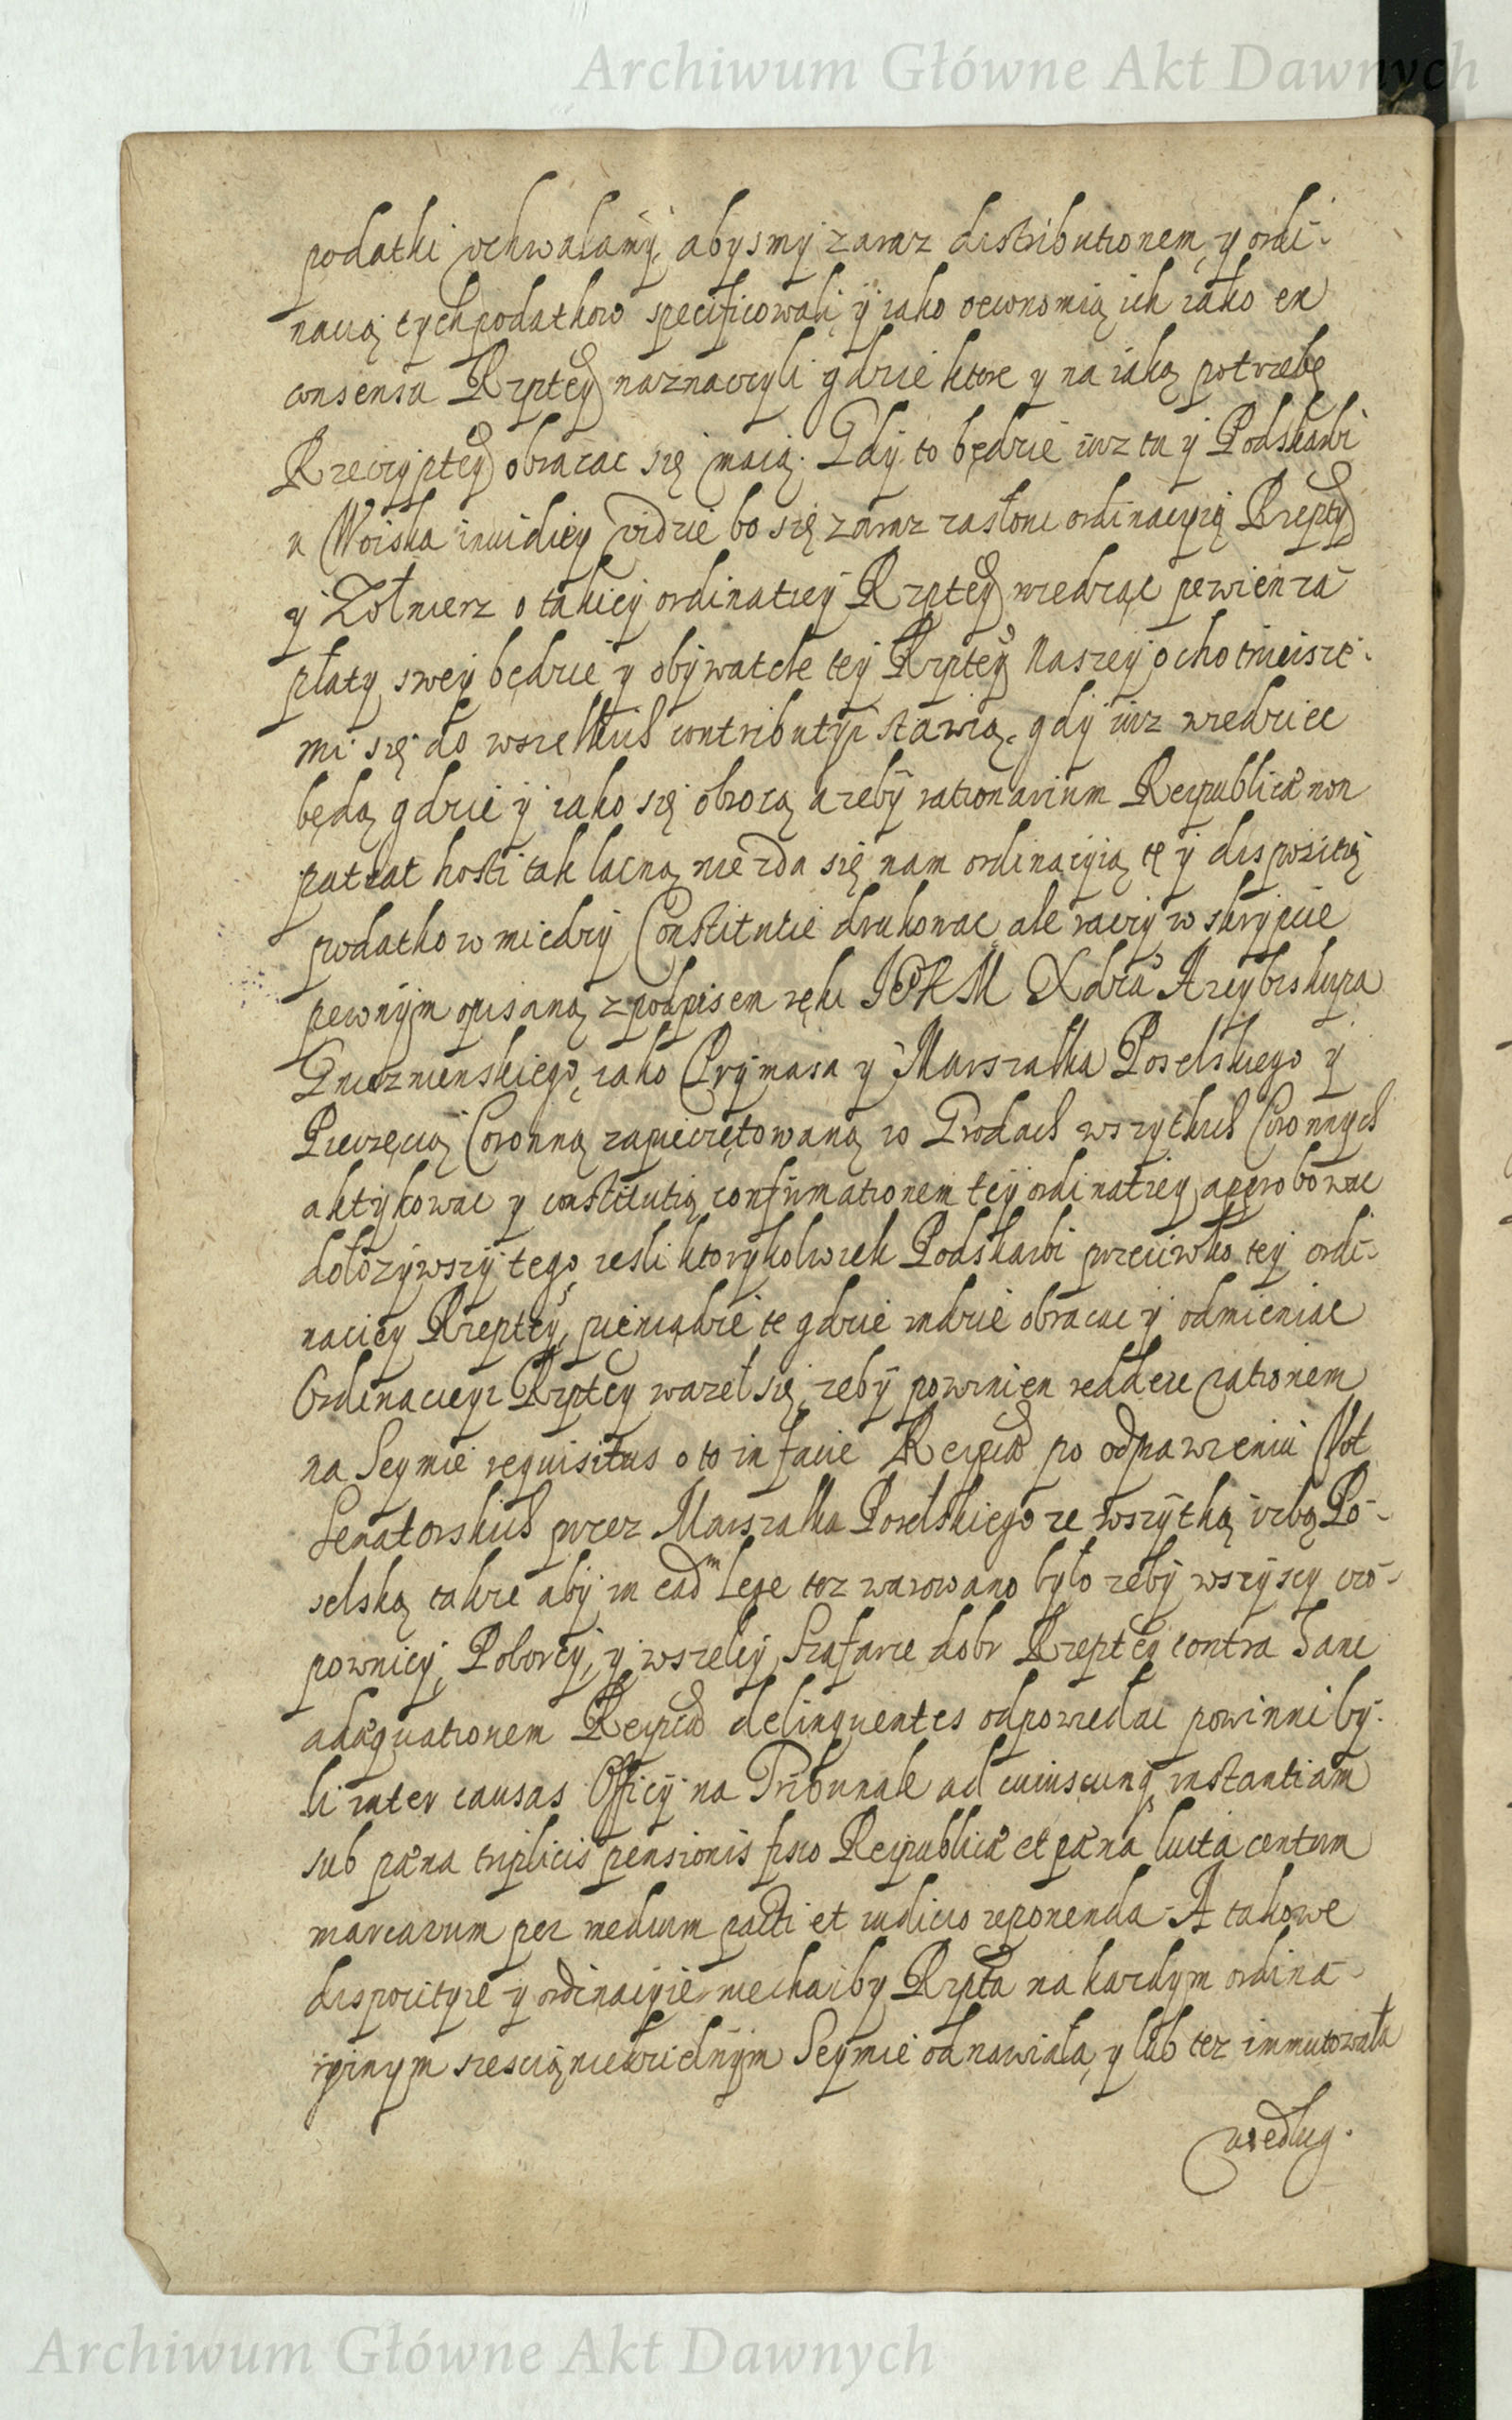 Archiwum Główne Akt Dawnych
podatki vchwalamy, abysmy zaraz distributionem y ordi-
nacią tych podatkow specificowali y iako oeconomią ich iako ex
consensu Rzptey naznaczyli gdzie ktore y na iaką potrzebę
Rzeczyptey obracac się maią. Gdy to będzie iusz tu y Podskarbi
u Woiska inuidiey vidzie bo się zaraz zasłoni ordinacyią Rzeptey
y Zołnierz o takiey ordinatiey Rzptey wiedząc pewien za
płaty swey będzie y obywatele tey Rzptey Naszey ochotnieisze-
mi się do wszelkich contributyi stawią, gdy iusz wiedziec
będą gdzie y iako się obrocą a zeby rationarium Reipublicæ non
pateat hosti tak lacną nie zda się nam ordinacyią tę y disposicią
podatkow miedzy Constitucie drukowac ale raczy w skrypcie
pewnym opisaną z podpisem ręki Xdza Arcybiskupa
Gnieznienskiego, iako Prymasa y Marszałka Poselskiego y
Pieczęcią Coronną zapieczętowaną w Grodach wszytkich Coronnych
aktykowac y constitutią confirmationem tey ordinatiey approbowac
dołozywszy tego iesli ktorykolwiek Podskarbi przeciwko tey ordi-
naciey Rzeptey, pieniądze te gdzie indzie obracac y odmieniac
Ordinacieyi Rzptey wazeł się, zeby powinien reddere rationem
na Seymie requisitus o to in facie Reipcæ po odprawieniu Vot
Senatorskich przez Marszalka Poselskiego ze wszytką izbą Po-
selską takze aby in eadm lege tez warowano było zeby wszyscy czo-
pownicy, Poborcy, y wszelcy Szafarze dobr Rzeptey contra hanc
adæquationem Reipcæ delinquentes odpowiedac powinni by-
li inter causas Officij na Tribunale ad cuiuscunq instantiam
sub pæna triplicis pensionis fisco Reipublicæ et pæna luita centum
marcarum per medium parti et iudicio reponenda. A takowe
dispozitye y ordinacyie niechaiby Rzpta na kazdym ordina-
ryinym szescią niedzielnym Seymie odnawiała, y lub tez immutowała
według.
Archiwum Główne Akt Dawnych